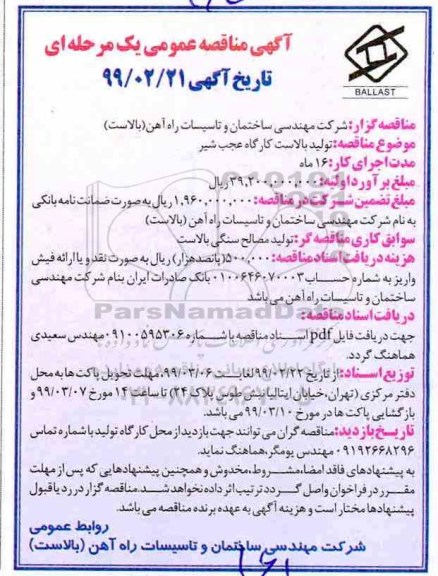 آگهی مناقصه عمومی یک مرحله ای
تاریخ آگهی ۹۹/۰۲/۲۱
BALLAST
مناقصه گزار: شرکت مهندسی ساختمان و تاسیسات راه آهن (بالاست)
موضوع مناقصه: تولید بالاست کارگاه عجب شیر
مدت اجرای کار: ۱۶ ماه
مبلغ برآورد اولیه: ۳۹,۲۰۰,۰۰۰,۰۰۰ ریال
مبلغ تضمین شرکت در مناقصه: ۱,۹۶۰,۰۰۰,۰۰۰ ریال به صورت ضمانت نامه بانکی
به نام شرکت مهندسی ساختمان و تاسیسات راه آهن (بالاست)
سوابق کاری مناقصه گر: تولید مصالح سنگی بالاست
هزینه دریافت اسناد مناقصه: ۵۰۰,۰۰۰ (پانصد هزار) ریال به صورت نقد و یا ارائه فیش
واریز به شماره حساب ۰۱۰۰۶۴۶۰۷۰۰۰۳ بانک صادرات ایران بنام شرکت مهندسی
ساختمان و تاسیسات راه آهن می باشد
دریافت اسناد مناقصه:
جهت دریافت فایل pdf اسناد مناقصه با شماره ۰۹۱۰۰۵۹۵۳۰۶ مهندس سعیدی
هماهنگ گردد.
توزیع اسناد: از تاریخ ۹۹/۰۲/۲۲ لغایت ۹۹/۰۳/۰۶، مهلت تحویل پاکت ها به محل
دفتر مرکزی (تهران، خیابان ایتالیا، نبش طوس، پلاک ۲۴) تا ساعت ۱۴ مورخ ۹۹/۰۳/۰۷ و
بازگشایی پاکت ها در مورخ ۹۹/۰۳/۱۰ می باشد.
تاریخ بازدید: مناقصه گران می توانند جهت بازدید از محل کارگاه تولید با شماره تماس
۰۹۱۹۲۶۶۸۲۹۶ مهندس یومگر، هماهنگ نماید.
به پیشنهادهای فاقد امضاء، مشروط، مخدوش و همچنین پیشنهادهایی که پس از مهلت
مقرر در فراخوان واصل گردد ترتیب اثر داده نخواهد شد. مناقصه گزار در رد یا قبول
پیشنهادها مختار است و هزینه آگهی به عهده برنده مناقصه می باشد.
روابط عمومی
شرکت مهندسی ساختمان و تاسیسات راه آهن (بالاست)
ParsNamadData